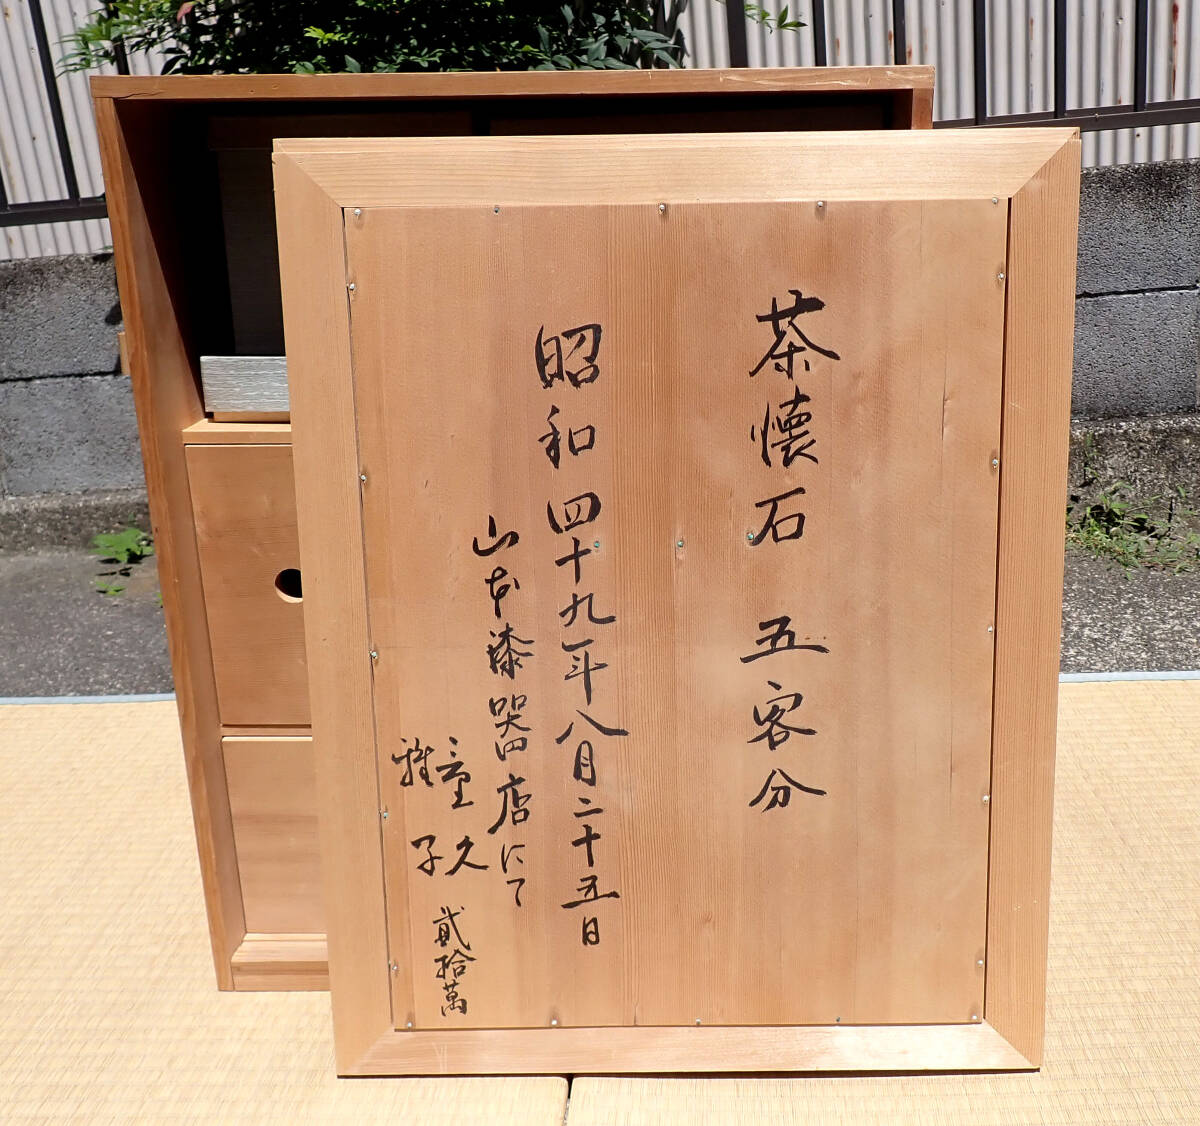 茶懐石 五客分
昭和四十九年八月二十五日
山本漆器店にて
重久
雅子
貳拾萬